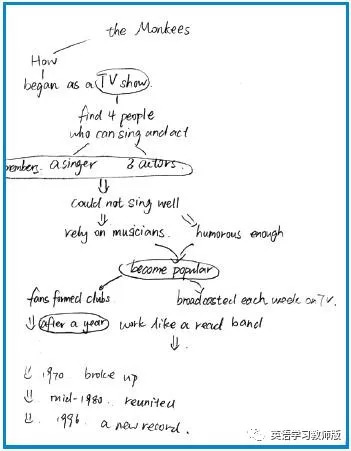 the Monkees
How
began as a TV show.
find 4 people
who can sing and act
members. a singer 3 actors.
could not sing well
rely on musicians. humorous enough
become popular
fans formed clubs. broadcasted each week on TV.
after a year work like a read band
1970 broke up
mid-1980 reunited
1996 a new record.
英语学习教师版